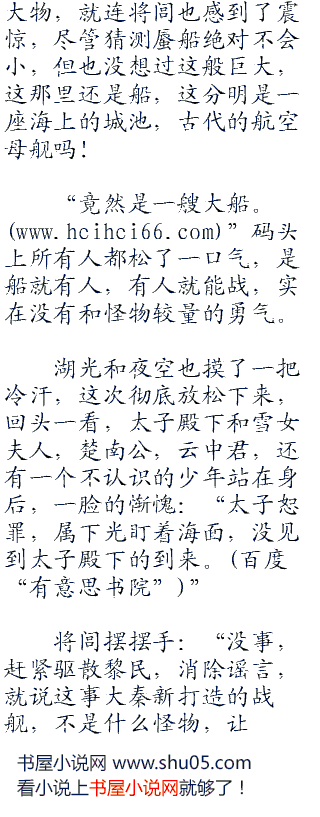 大物，就连将闾也感到了震
惊，尽管猜测蜃船绝对不会
小，但也没想过这般巨大，
这那里还是船，这分明是一
座海上的城池，古代的航空
母舰吗！
“竟然是一艘大船。
(www.hcihci66.com)”码头
上所有人都松了一口气，是
船就有人，有人就能战，实
在没有和怪物较量的勇气。
湖光和夜空也摸了一把
冷汗，这次彻底放松下来，
回头一看，太子殿下和雪女
夫人，楚南公，云中君，还
有一个不认识的少年站在身
后，一脸的惭愧：“太子恕
罪，属下光盯着海面，没见
到太子殿下的到来。(百度
“有意思书院”)”
将闾摆摆手：“没事，
赶紧驱散黎民，消除谣言，
就说这事大秦新打造的战
舰，不是什么怪物，让
书屋小说网 www.shu05.com
看小说上书屋小说网就够了！